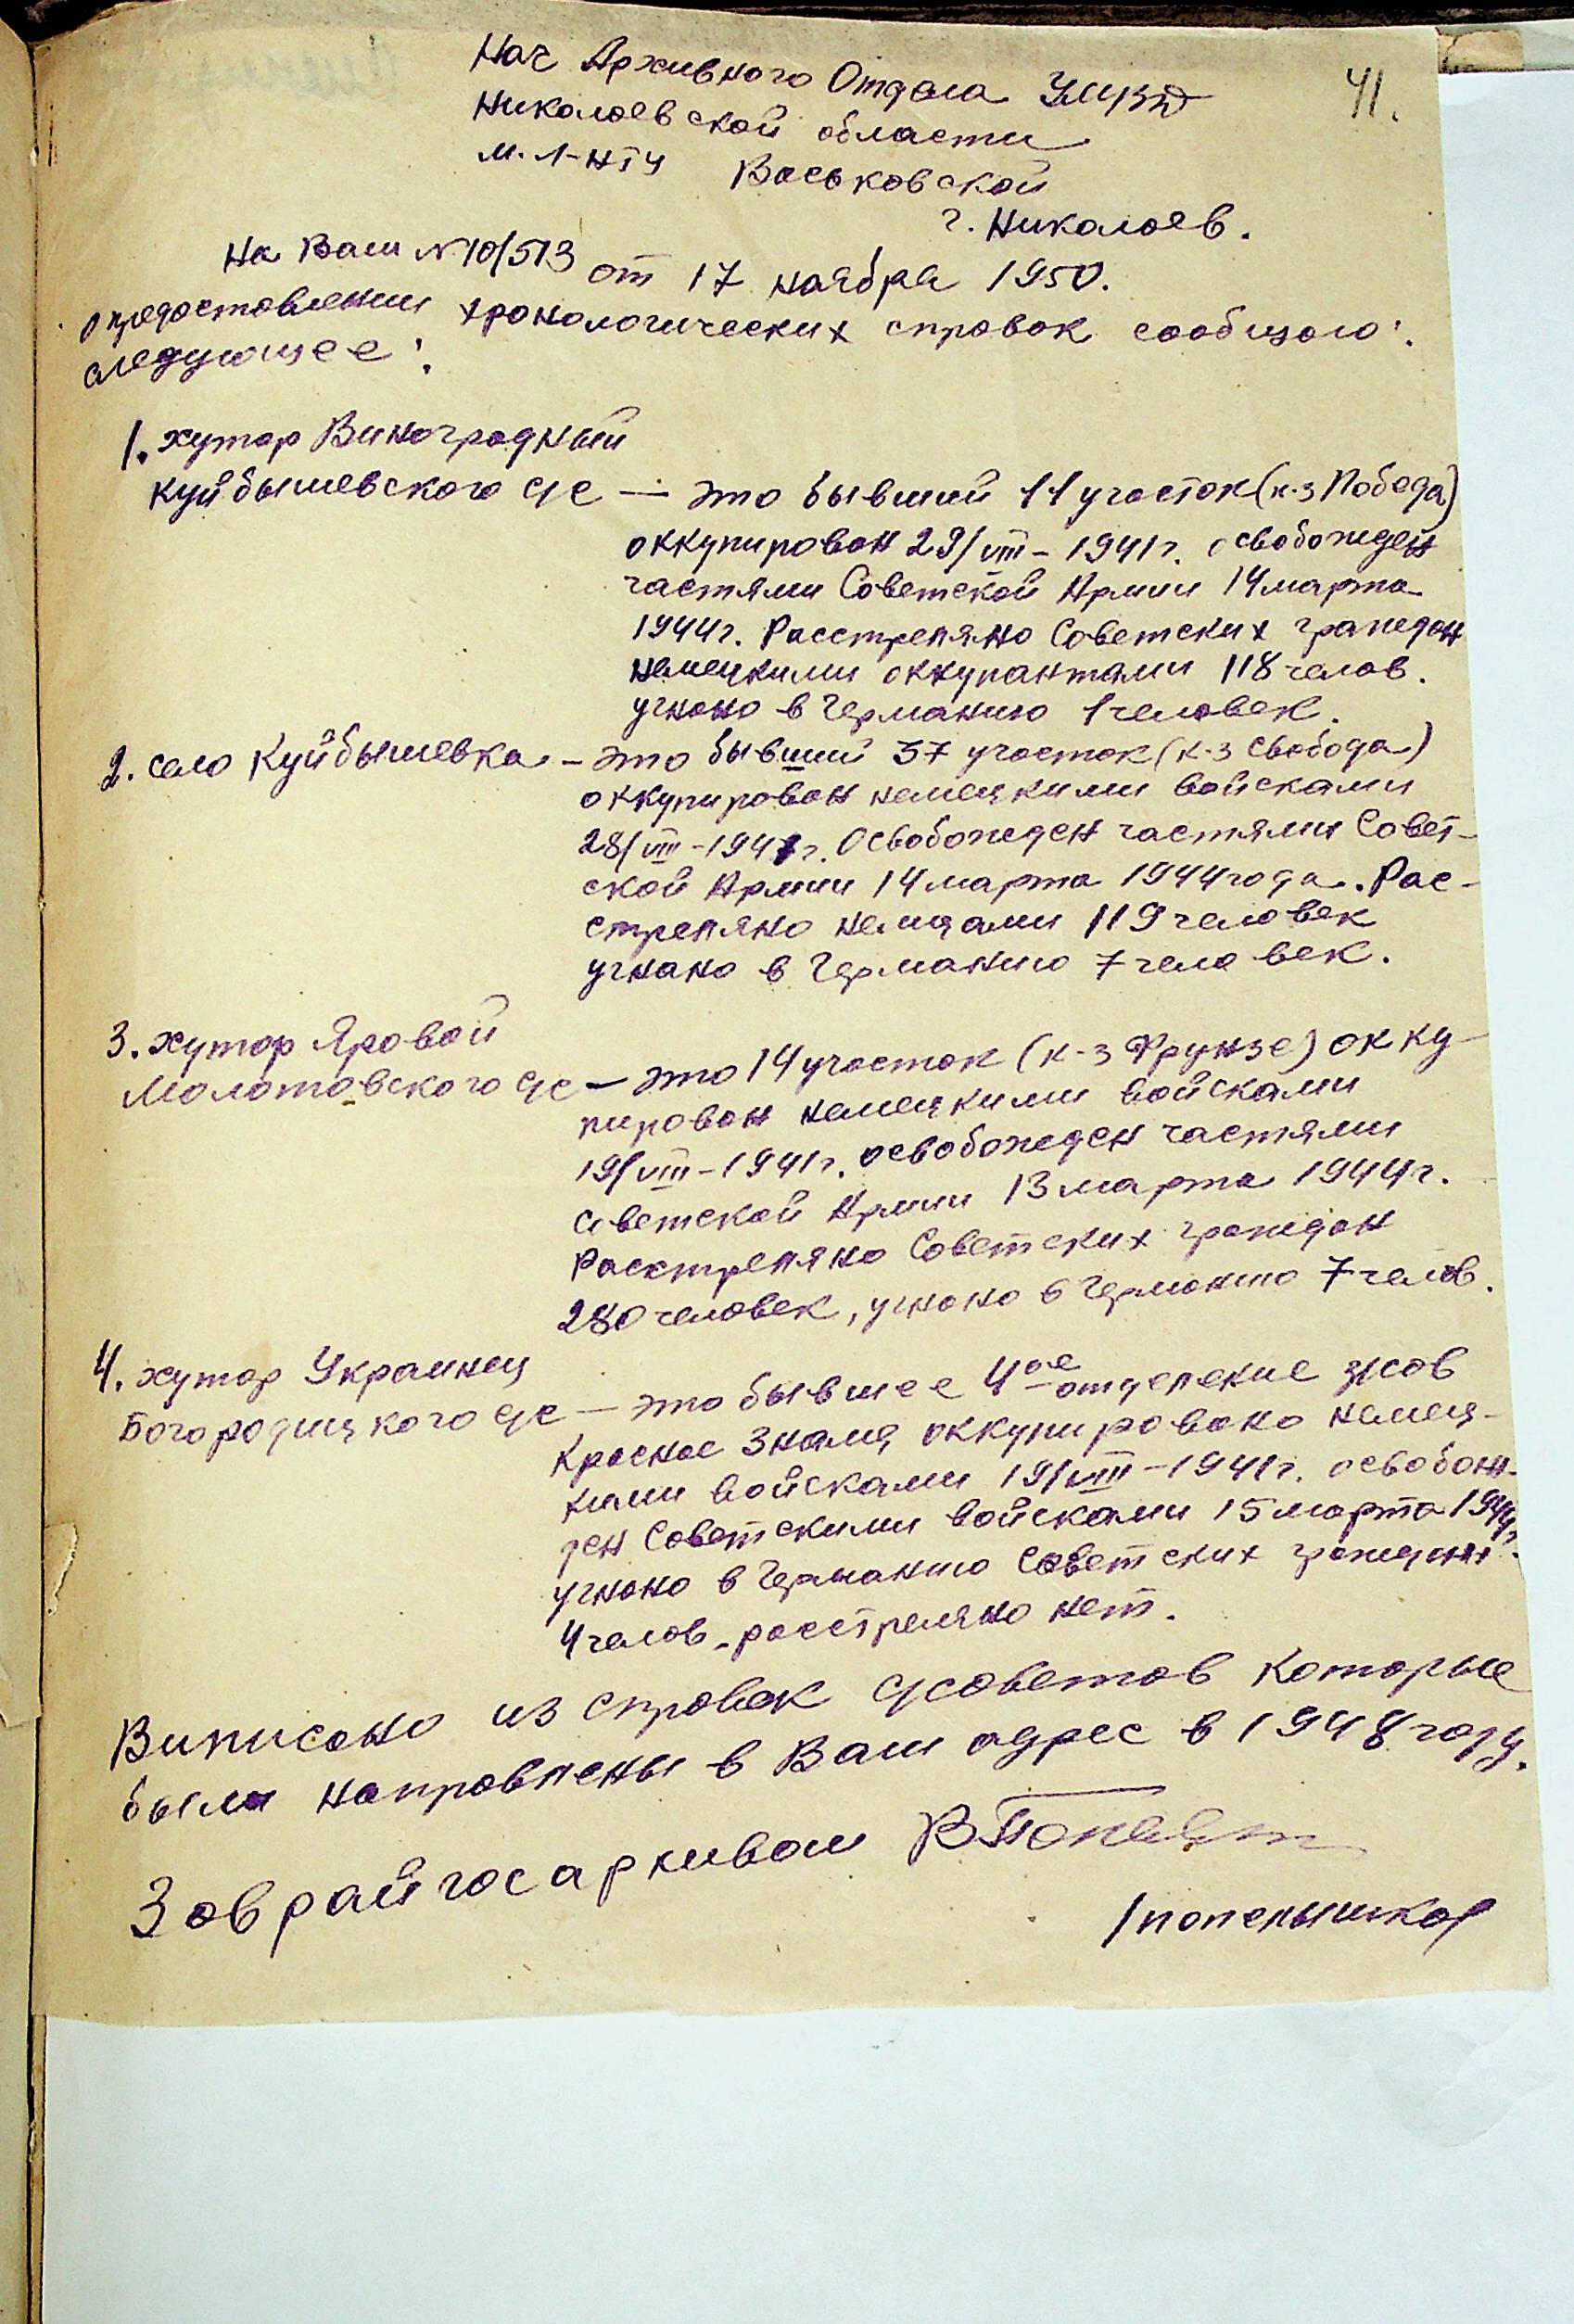 41.
Нач Архивного Отдела УМВД
Николаевской области
м. л-нту Васьковской
г. Николаев.
На Ваш №10/513 от 17 ноября 1950.
о предоставлении хронологических справок сообщаю:
следующее:
1. хутор Виноградный
Куйбышевского с/с — это бывший 11 участок (к-з Победа)
оккупирован 29/VIII-1941г. освобожден
частями Советской Армии 14 марта
1944г. Расстреляно Советских граждан
немецкими оккупантами 118 челов.
угнано в Германию 1 человек.
2. село Куйбышевка — это бывший 37 участок (к-з Свобода)
оккупирован немецкими войсками
28/VIII-1941г. Освобожден частями Совет-
ской Армии 14 марта 1944 года. Рас-
стреляно немцами 119 человек
угнано в Германию 7 человек.
3. хутор Яровой
Молотовского с/с — это 14 участок (к-з Фрунзе) окку-
пирован немецкими войсками
19/VIII-1941г. освобожден частями
Советской Армии 13 марта 1944г.
Расстреляно Советских граждан
280 человек, угнано в Германию 7 челов.
4. хутор Украинец
Богородицкого с/с — это бывшее 4ое отделение з/сов
Красное Знамя оккупировано немец-
кими войсками 19/VIII-1941г. освобож-
ден Советскими войсками 15 марта 1944г.
угнано в Германию Советских граждан
4 челов. расстреляно нет.
Виписано из справок с/советов которые
были направлены в Ваш адрес в 1948 году.
Зав райгосархивом
/Попельшкор